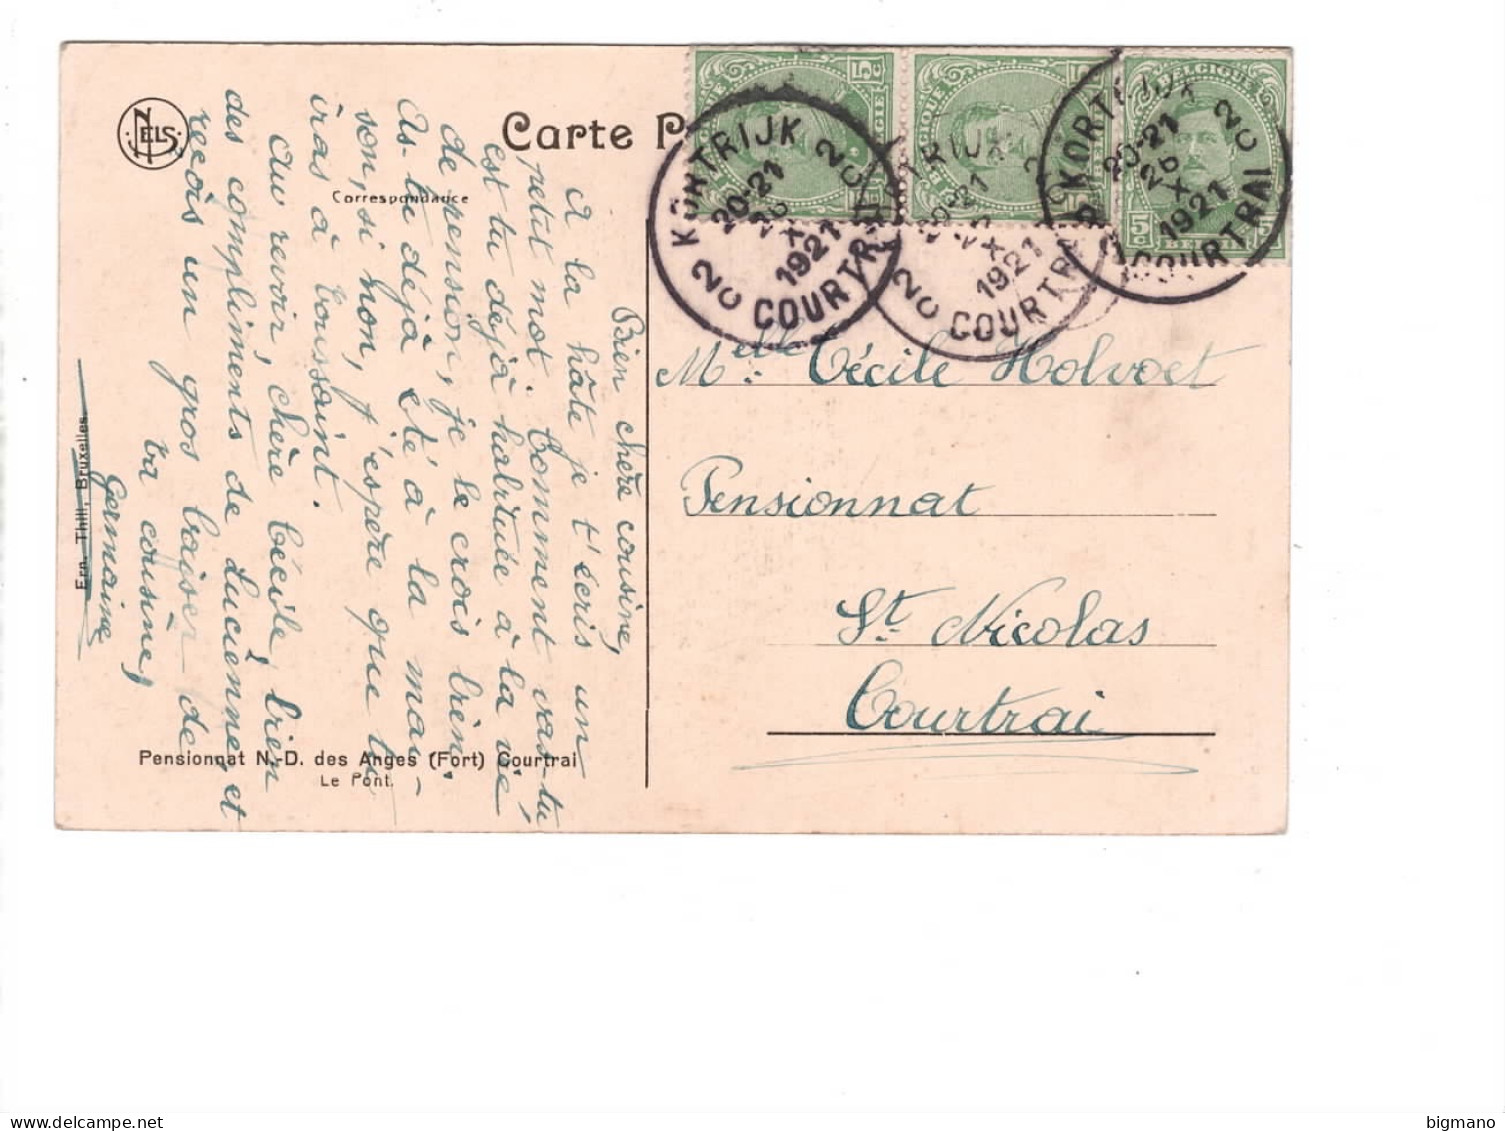 NELS
Carte P
Correspondance
Bien chère cousine,
A la hâte je t'écris un
petit mot. Comment vas-tu,
es tu déjà habituée à la vie
de pension, je le crois bien.
As-tu déjà été à la mai-
son, si non, j'espère que tu
iras à Toussaint.
Au revoir, chère Cécile, bien
des compliments de Lucienne, et
reçois un gros baiser de
ta cousine,
Germaine
Ern. Thill, Bruxelles.
Pensionnat N.-D. des Anges (Fort) Courtrai
Le Pont.
5c
BELGIQUE
KORTRIJK 2C
20-21
26
X
1921
2C COURTRAI
KORTRIJK 2C
20-21
26
X
1921
2C COURTRAI
KORTRIJK 2C
20-21
26
X
1921
2C COURTRAI
Melle Cécile Holvoet
Pensionnat
St. Nicolas
Courtrai
delcampe.net
bigmano